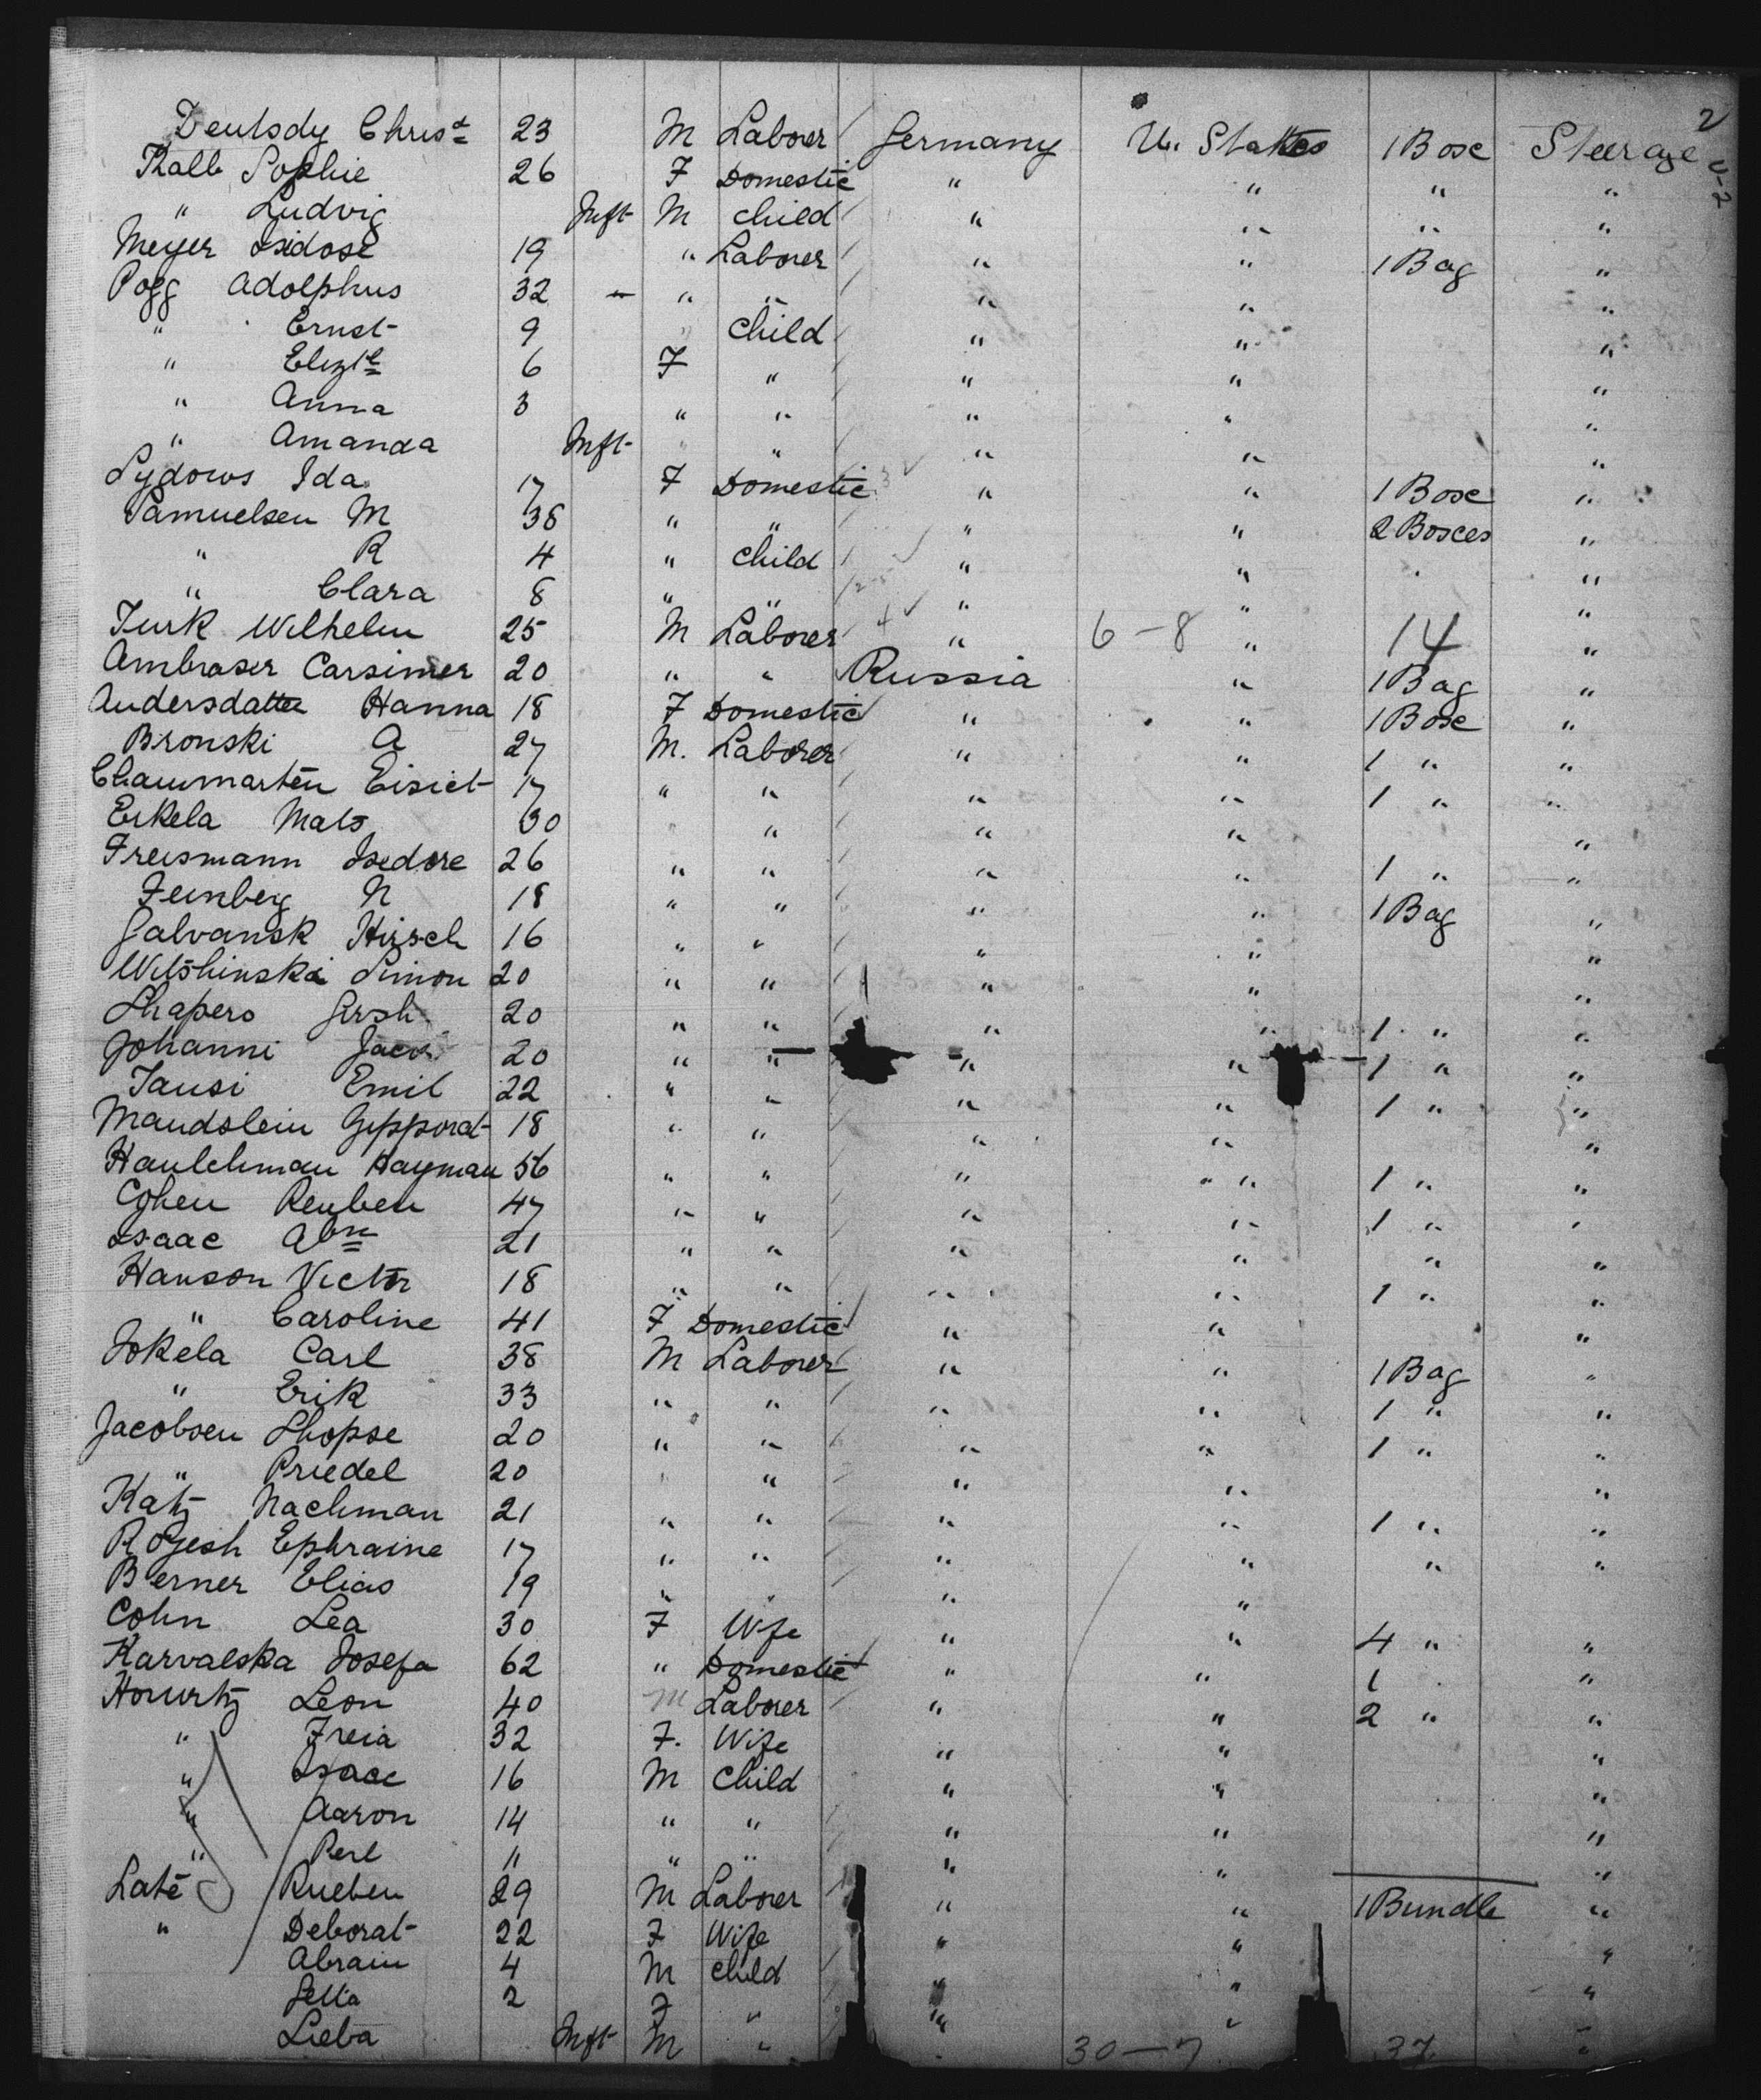 2
Deutsdy Christ 23 M Laborer Germany U. States 1 Box Steerage
Kalb Sophie 26 F Domestic " " " "
" Ludvig Inft M Child " " " "
Meyer Isidose 19 " Laborer " " 1 Bag "
Pogg Adolphus 32 — " " " " "
" Ernst 9 " Child " " "
" Elizth 6 F " " " "
" Anna 3 " " " " "
" Amanda Inft " " " " "
Sydows Ida 17 F Domestic " " 1 Box "
Samuelsen M 38 " " " " 2 Boxes "
" R 4 " Child " " "
" Clara 8 " " " " "
Turk Wilhelm 25 M Laborer " 6-8 " 14 "
Ambraser Carsimer 20 " " Russia " 1 Bag "
Andersdatter Hanna 18 F Domestic " " 1 Box "
Bronski A 27 M. Laborer " " 1 " "
Chaumarten Eisict 17 " " " " 1 " "
Erkela Mats 30 " " " " "
Freismann Isedore 26 " " " " 1 " "
Feinberg N 18 " " " " 1 Bag "
Galvansk Hirsch 16 " " " " "
Witshinski Simon 20 " " " " "
Shapero Girsh 20 " " " " 1 " "
Johanni Jack 20 " " " " 1 " "
Tausi Emil 22 " " " " 1 " "
Maudslein Gipporat 18 " " " " "
Haulchman Hayman 56 " " " " 1 " "
Cohen Reuben 47 " " " " 1 " "
Isaac Abm 21 " " " " " "
Hanson Victor 18 " " " " 1 " "
" Caroline 41 F Domestic " " "
Jokela Carl 38 M Laborer " " 1 Bag "
" Erik 33 " " " " 1 " "
Jacobsen Shopse 20 " " " " 1 " "
" Priedel 20 " " " " "
Katz Nachman 21 " " " " 1 " "
Rogesh Ephraine 17 " " " " " "
Berner Elias 19 " " " "
Cohn Lea 30 F Wife " " 4 " "
Karvalska Josefa 62 " Domestic " " 1 "
Horwitz Leon 40 M Laborer " " 2 " "
" Freia 32 F. Wife " " "
" Isaac 16 M Child " " "
" Aaron 14 " " " " "
" Perl 11 " " " " "
Late Rueben 29 M Laborer " " 1 Bundle "
" Deborat 22 F Wife " " "
Abram 4 M Child " " "
Jetta 2 F " " " "
Lieba Inft M " " 30-7 37 "